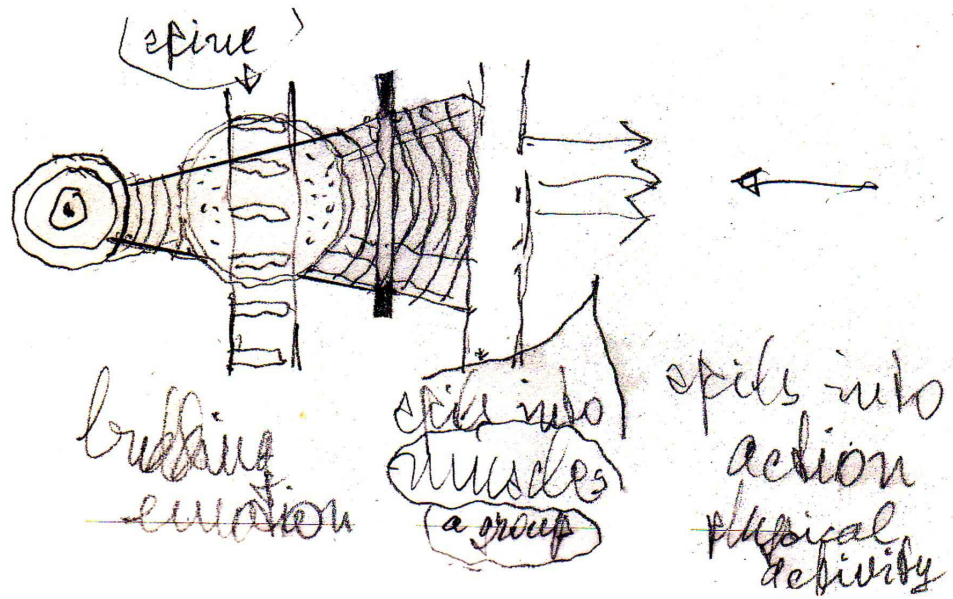 (spine)
budding
emotion
spils into
muscles
a group
spils into
action
physical
activity